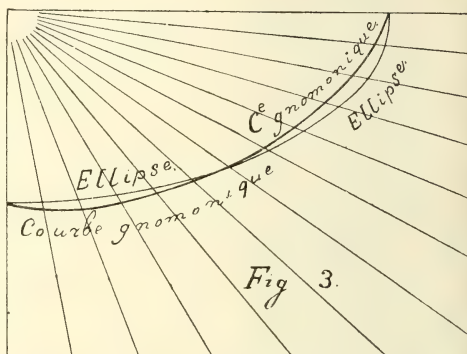 Cᵉ gnomonique.
Ellipse.
Ellipse.
Courbe gnomonique
Fig 3.